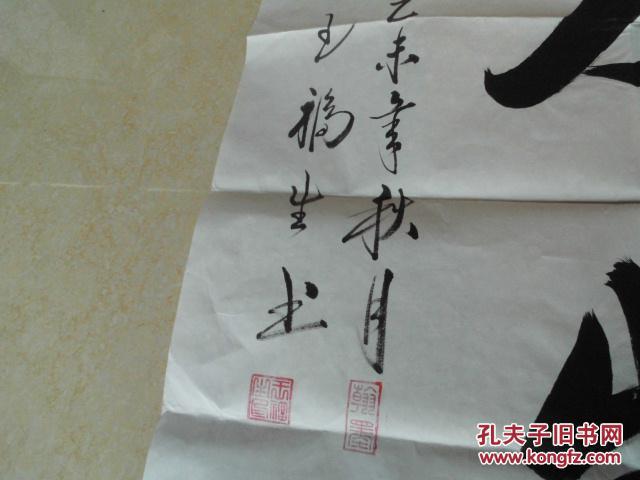 乙未年秋月
王福生书
翰墨
孔夫子旧书网
www.kongfz.com